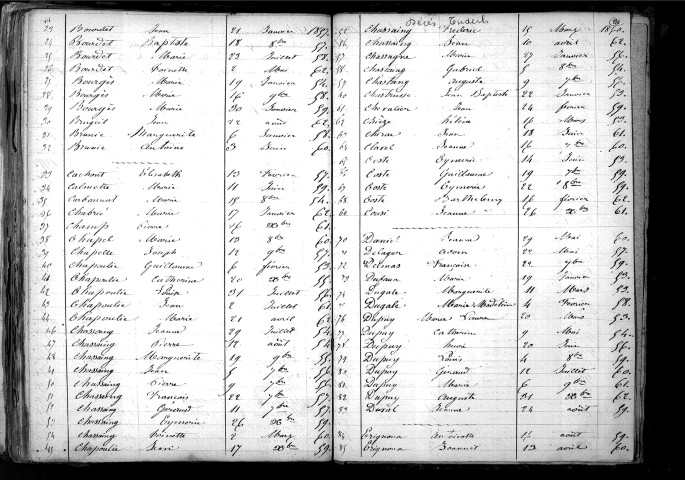 23 Bourdet Jean 21 Janvier 1857.
24 Bourdet Baptiste 18 8bre 57.
25 Bourdet Marie 23 Juillet 58.
26 Bourdet Toinette 2 Mai 62.
27 Bourgès Marie 19 Janvier 54.
28 Bourgès Marie 16 9bre 58.
29 Bourgès Marie 30 Janvier 59.
30 Jean 22 août 62.
31 Brunie Marguerite 6 Janvier 58.
32 Brunie Antoine 3 Juin 60.
33 Cachout Elisabeth 13 Février 57.
34 Calmette Marie 11 Juin 59.
35 Carbonnel Marie 18 8bre 54.
36 Chabrié Marie 17 Janvier 62.
37 Champ Pierre 16 Xbre 61.
38 Chapel Marie 13 8bre 60.
39 Chapelle Joseph 12 9bre 57.
40 Chapoulie Guillaume 6 février 53.
41 Chapoulie Catherine 20 Xbre 55.
42 Chapoulie Louise 31 Juillet 56.
43 Chapoulie Jean 2 Juillet 61.
44 Chapoulie Marie 21 avril 62.
46 Chassaing Jeanne 29 Juillet 54.
47 Chassaing Pierre 12 août 54.
48 Chassaing Marguerite 19 9bre 55.
Chassaing Jean 5 7bre 56.
50 Chassaing Pierre 9 7bre 56.
51 Chassaing Francois 22 7bre 57.
52 Chassaing Geraud 11 7bre 57.
53 Chassaing Eymerie 26 Xbre 59.
54 Chassaing Toinette 2 Mars 60.
45 Chapoulie Jean 17 Xbre 59.
Décès
55 Chassaing Fréderic 15 Mars 1860.
56 Chassaing Jean 10 avril 62.
57 Chassagne Marie 27 Janvier 56.
58 Chastang Gabriel 7 8bre 54.
59 Chastang Augusta 9 7bre
60 Jean Baptiste 22 Janvier 53.
61 Chevalier Jean 24 février 59.
62 16 Mars 53.
63 Jean 18 Juin 61.
64 Clavel Jeanne 16 7bre 60.
65 Coste Eymerie 14 Juin 53.
66 Coste Guillaume 19 7bre 59.
67 Coste Eymerie 22 8bre 59.
68 Coste Barthelemy 16 février 62.
Jeanne 26 Xbre 61.
70 Danié Jeanne 29 Mai 60.
71 Delager 22 Mai 57.
72 Delmas Françoise 22 7bre 59.
73 Marie 19 Janvier 53.
74 Dugale Marguerite 11 Mars 53.
Dugale Marie Madeleine 4 Février 58.
76 Dupuy Marie Louise 20 Mars 53.
77 Dupuy Catherine 9 Mai 54.
78 Dupuy 20 Juin 56.
79 Dupuy Louis 4 8bre 59.
80 Dupuy Geraud 12 Juillet 60.
81 Dupuy Marie 6 9bre 61.
82 Dupuy Auguste 31 Xbre 62.
83 Duval Jeanne 24 août 59.
84 Erignoux Antoinette 14 août 59.
85 Erignoux Jeannet 13 avril 60.